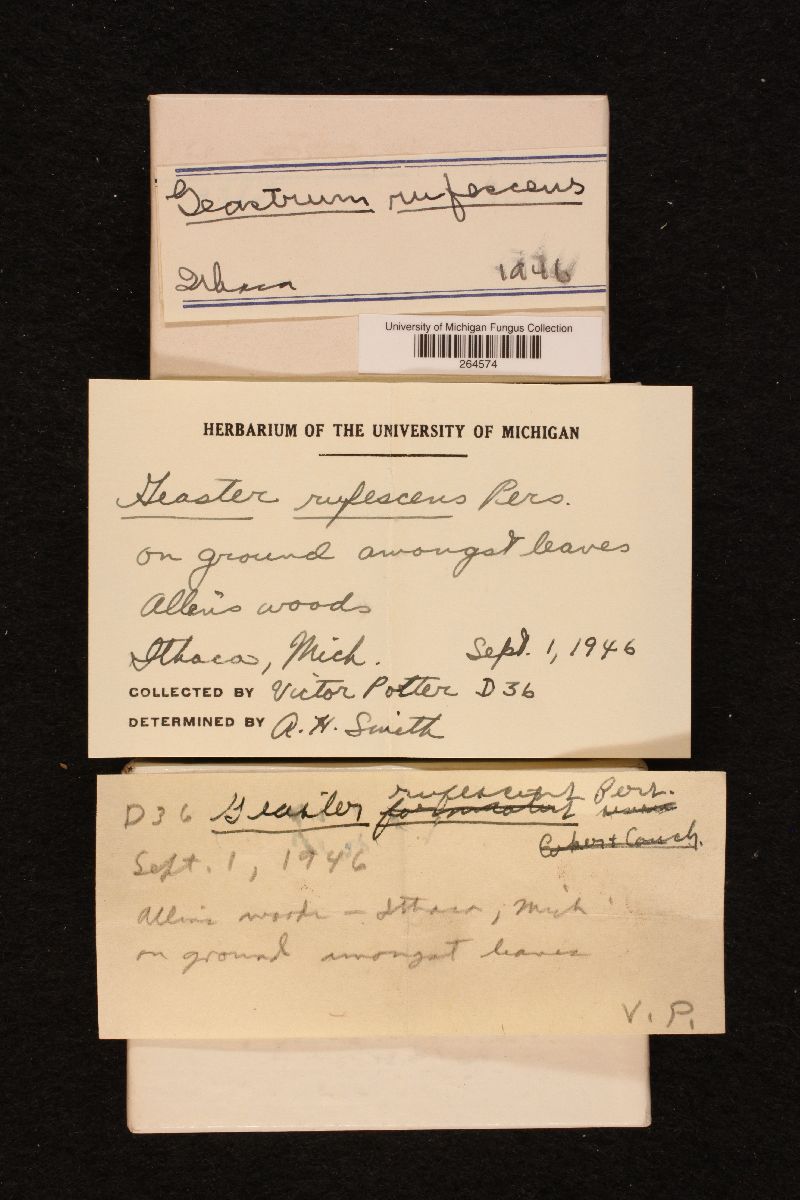 Geastrum rufescens
Ithaca 1946
University of Michigan Fungus Collection
264574
HERBARIUM OF THE UNIVERSITY OF MICHIGAN
Geaster rufescens Pers.
on ground amongst leaves
Allen's woods
Ithaca, Mich. Sept. 1, 1946
COLLECTED BY Victor Potter D36
DETERMINED BY A. H. Smith
rufescens Pers.
D36 Geaster
Coker & Couch.
Sept. 1, 1946
Allen's woods - Ithaca, Mich
on ground amongst leaves
V. P.